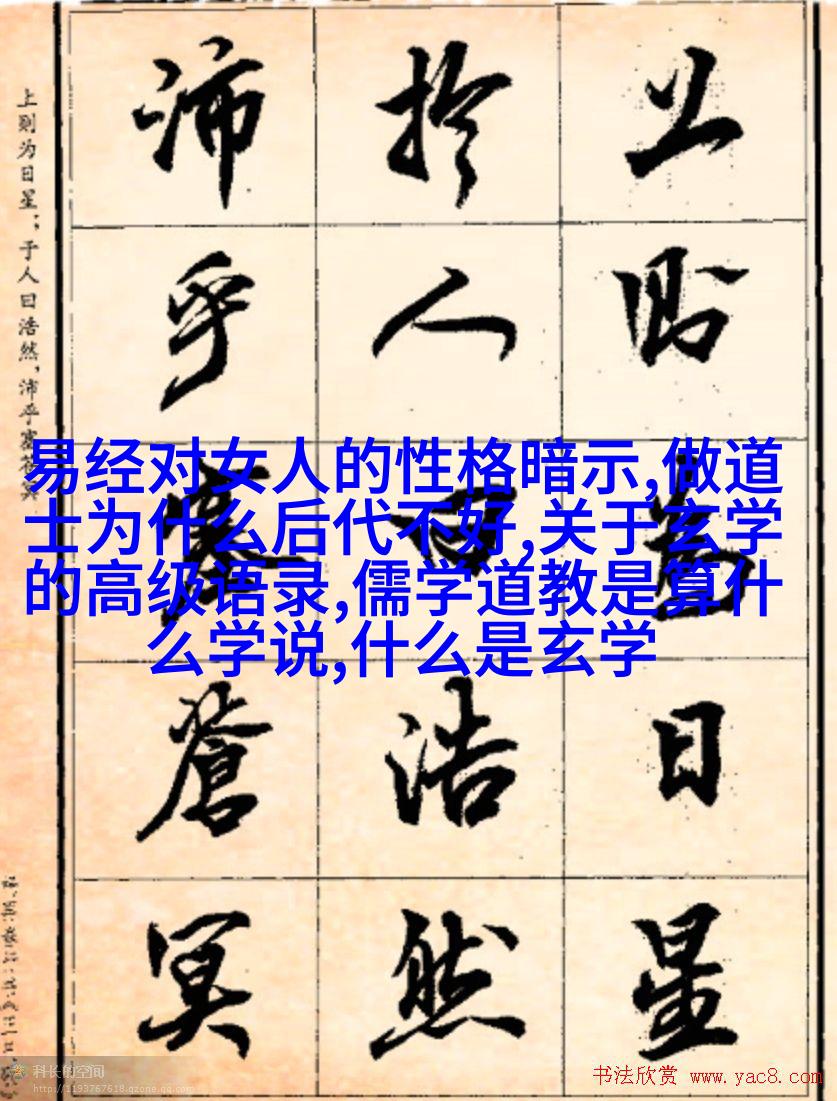 上則為日星
於人曰浩然
沛乎塞蒼冥
上则为日星；于人曰浩然，沛乎塞苍冥
易经对女人的性格暗示,做道
士为什么后代不好,关于玄学
的高级语录,儒学道教是算什
么学说,什么是玄学
科长的空间
http://1193767618.qzone.qq.com
书法欣赏 www.yac8.com